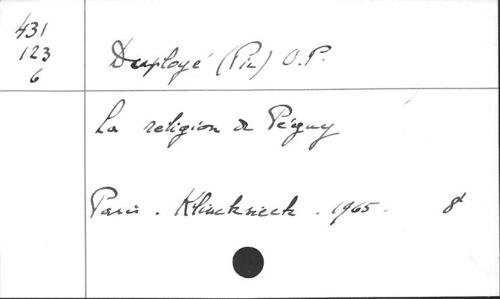 431
123
6
Duployé (Pie) O.P.
La religion de Péguy
Paris. Klincksieck. 1965. 8°